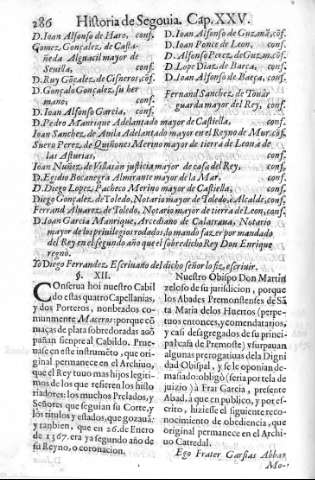 286 Historia de Segouia. Cap. XXV.
D. Ioan Alfonso de Haro, conf.
Gomez Gonçalez de Casta-
ñeda Alguacil mayor de
Seuilla, conf.
D. Ruy Gõçalez de Cisneros cõf.
D. Gonçalo Gonçalez, su her
mano, conf.
D. Ioan Alfonso Garcia, conf.
D. Ioan Alfonso de Guzmã, cõf.
D. Ioan Ponce de Leon, conf.
D. Alfonso Perez de Guzman, cõf.
D. Lope Diaz de Baeça, conf.
D. Ioan Alfonso de Baeça, conf.
Fernand Sanchez de Touar
guarda mayor del Rey, conf.
D. Pedro Manrique Adelantado mayor de Castiella, conf.
Ioan Sanchez de Auila Adelantado mayor en el Reyno de Mur. cõf.
Suero Perez de Quiñones Merino mayor de tierra de Leon à de
las Asturias, conf.
Ioan Nuñez de Villazan justicia mayor de casa del Rey, conf.
D. Egidio Bocanegra Almirante mayor de la Mar, conf.
D. Diego Lopez Pacheco Merino mayor de Castiella, conf.
Diego Gonçalez de Toledo, Notario mayor de Toledo, è Alcalde, conf.
Ferrand Aluarez de Toledo, Notario mayor de tierra de Leon, conf.
D. Ioan Garcia Manrique, Arcediano de Calatraua, Notario
mayor de los priuilegios rodados, lo mando fazer por mandado
del Rey en el segundo año que el sobredicho Rey Don Enrique
regno.
Yo Diego Ferrandez Escriuano del dicho señor lo fiz, escriuir.
§. XII.
COnserua hoi nuestro Cabil
do estas quatro Capellanias,
y dos Porteros, nonbrados co
munmente Maceros: porque cõ
maças de plata sobredoradas aco
pañan sienpre al Cabildo. Prue-
uase en este instrumẽto, que ori
ginal permanece en el Archiuo,
que el Rey tuuo mas hijos legiti
mos de los que refieren los histo
riadores: los muchos Prelados, y
Señores que seguian su Corte, y
los titulos y estados, que gozauã:
y tanbien, que en 26. de Enero
de 1367. era ya segundo año de
su Reyno, o coronacion.
Nuestro Obispo Don Martin
zeloso de su jurisdicion, porque
los Abades Premonstenses de Sã
ta Maria delos Huertos (perpe-
tuos entonces, y comendatarios,
y casi desagregados de su princi-
pal casa de Premoste) vsurpauan
algunas prerogatiuas dela Digni
dad Obispal, y se le oponian de-
masiado: obligò (seria por tela de
juizio) à Frai Garcia, presente
Abad, à que en publico, y por es-
crito, hiziesse el siguiente reco-
nocimiento de obediencia, que
original permanece en el Archi-
uo Catredal.
Ego Frater Garsias Abbas
Mo-